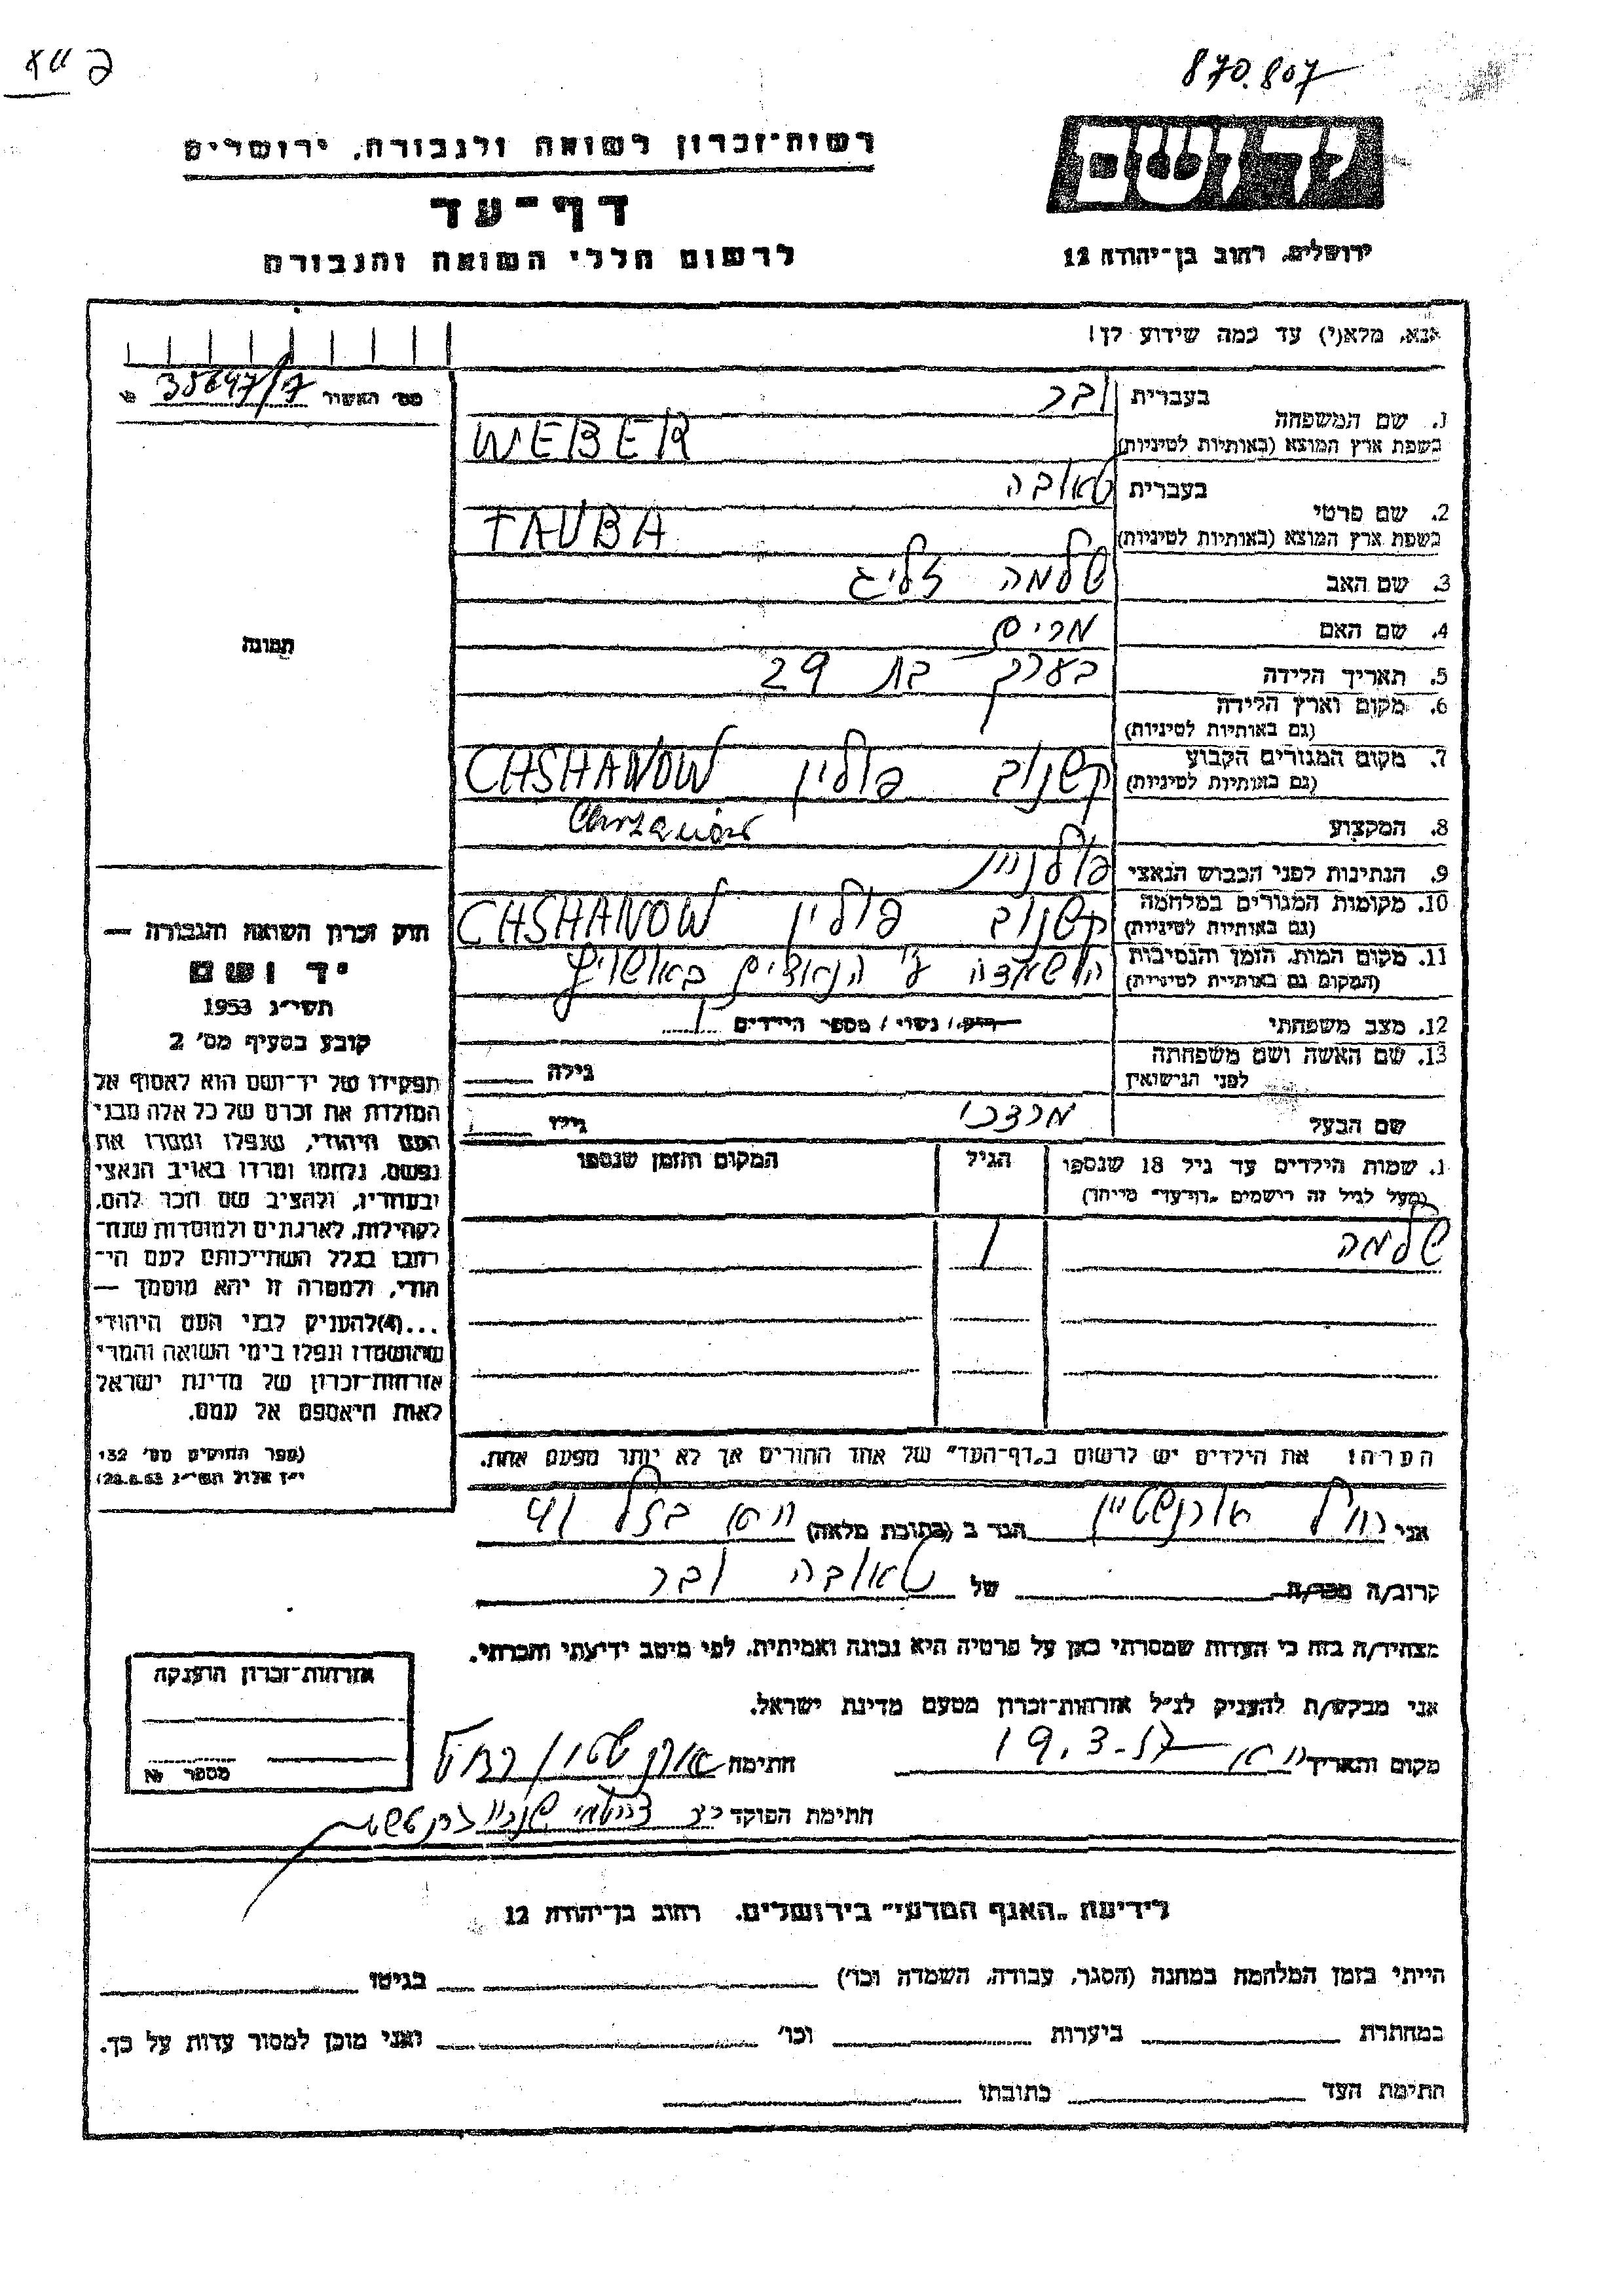 870.807
יד ושם
רשות־זכרון לשואה ולגבורה, ירושלים
דף־עד
לרשום חללי השואה והגבורה
ירושלים, רחוב בן־יהודה 12
אנא, מלא(י) עד כמה שידוע לך!
מס׳ האשור 35647/7
1. שם המשפחה בעברית ובר
בשפת ארץ המוצא (באותיות לטיניות) WEBER
2. שם פרטי בעברית טאובה
בשפת ארץ המוצא (באותיות לטיניות) TAUBA
3. שם האב שלמה זליג
4. שם האם מרים
5. תאריך הלידה בערך בת 29
6. מקום וארץ הלידה
(גם באותיות לטיניות)
7. מקום המגורים הקבוע קשנוב פולין CHSHANOW
(גם באותיות לטיניות)
8. המקצוע Chrzanów
9. הנתינות לפני הכבוש הנאצי פולנית
10. מקומות המגורים במלחמה קשנוב פולין CHSHANOW
(גם באותיות לטיניות)
11. מקום המות, הזמן והנסיבות הושמדה ע"י הנאצים באושויץ
(המקום גם באותיות לטיניות)
12. מצב משפחתי רווק / נשוי / מספר הילדים 1
13. שם האשה ושם משפחתה גילה
לפני הנישואין
שם הבעל מרדכי גילו
1. שמות הילדים עד גיל 18 שנספו הגיל המקום והזמן שנספו
(מעל לגיל זה רישמים "דף־עד" מיוחד)
שלמה 1
הערה: את הילדים יש לרשום ב"דף־העד" של אחד ההורים אך לא יותר מפעם אחת.
תמונה
חוק זכרון השואה והגבורה —
יד ושם
תשי״ג 1953
קובע בסעיף מס׳ 2
תפקידו של יד־ושם הוא לאסוף אל
המולדת את זכרם של כל אלה מבני
העם היהודי, שנפלו ומסרו את
נפשם, נלחמו ומרדו באויב הנאצי
ובעוזריו, ולהציב שם וזכר להם,
לקהילות, לארגונים ולמוסדות שנח־
רבו בגלל השתייכותם לעם הי־
הודי, ולמטרה זו יהא מוסמך —
...(4)להעניק לבני העם היהודי
שהושמדו ונפלו בימי השואה והמרי
אזרחות־זכרון של מדינת ישראל
לאות היאספם אל עמם.
(ספר החוקים מס׳ 132
י״ז אלול תשי״ג 28.8.53)
אני רחל אורנשטיין הגר ב (כתובת מלאה)
קרוב/ה מכר/ה של טאובה ובר
מצהיר/ה בזה כי העדות שמסרתי כאן על פרטיה היא נכונה ואמיתית, לפי מיטב ידיעתי והכרתי.
אני מבקש/ת להעניק לנ״ל אזרחות־זכרון מטעם מדינת ישראל.
מקום ותאריך 19.3.57 חתימה
חתימת הפוקד
אזרחות־זכרון הוענקה
מספר №
לידיעת "האגף המדעי" בירושלים, רחוב בן־יהודה 12
הייתי בזמן המלחמה במחנה (הסגר, עבודה, השמדה וכו׳) בגיטו
במחתרת ביערות וכו׳ ואני מוכן למסור עדות על כך.
חתימת העד כתובתו